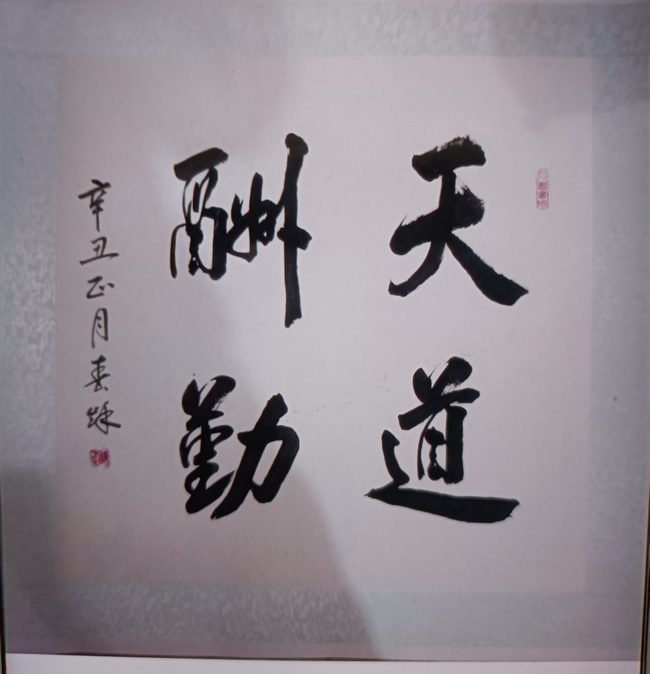 天道
酬勤
辛丑正月春